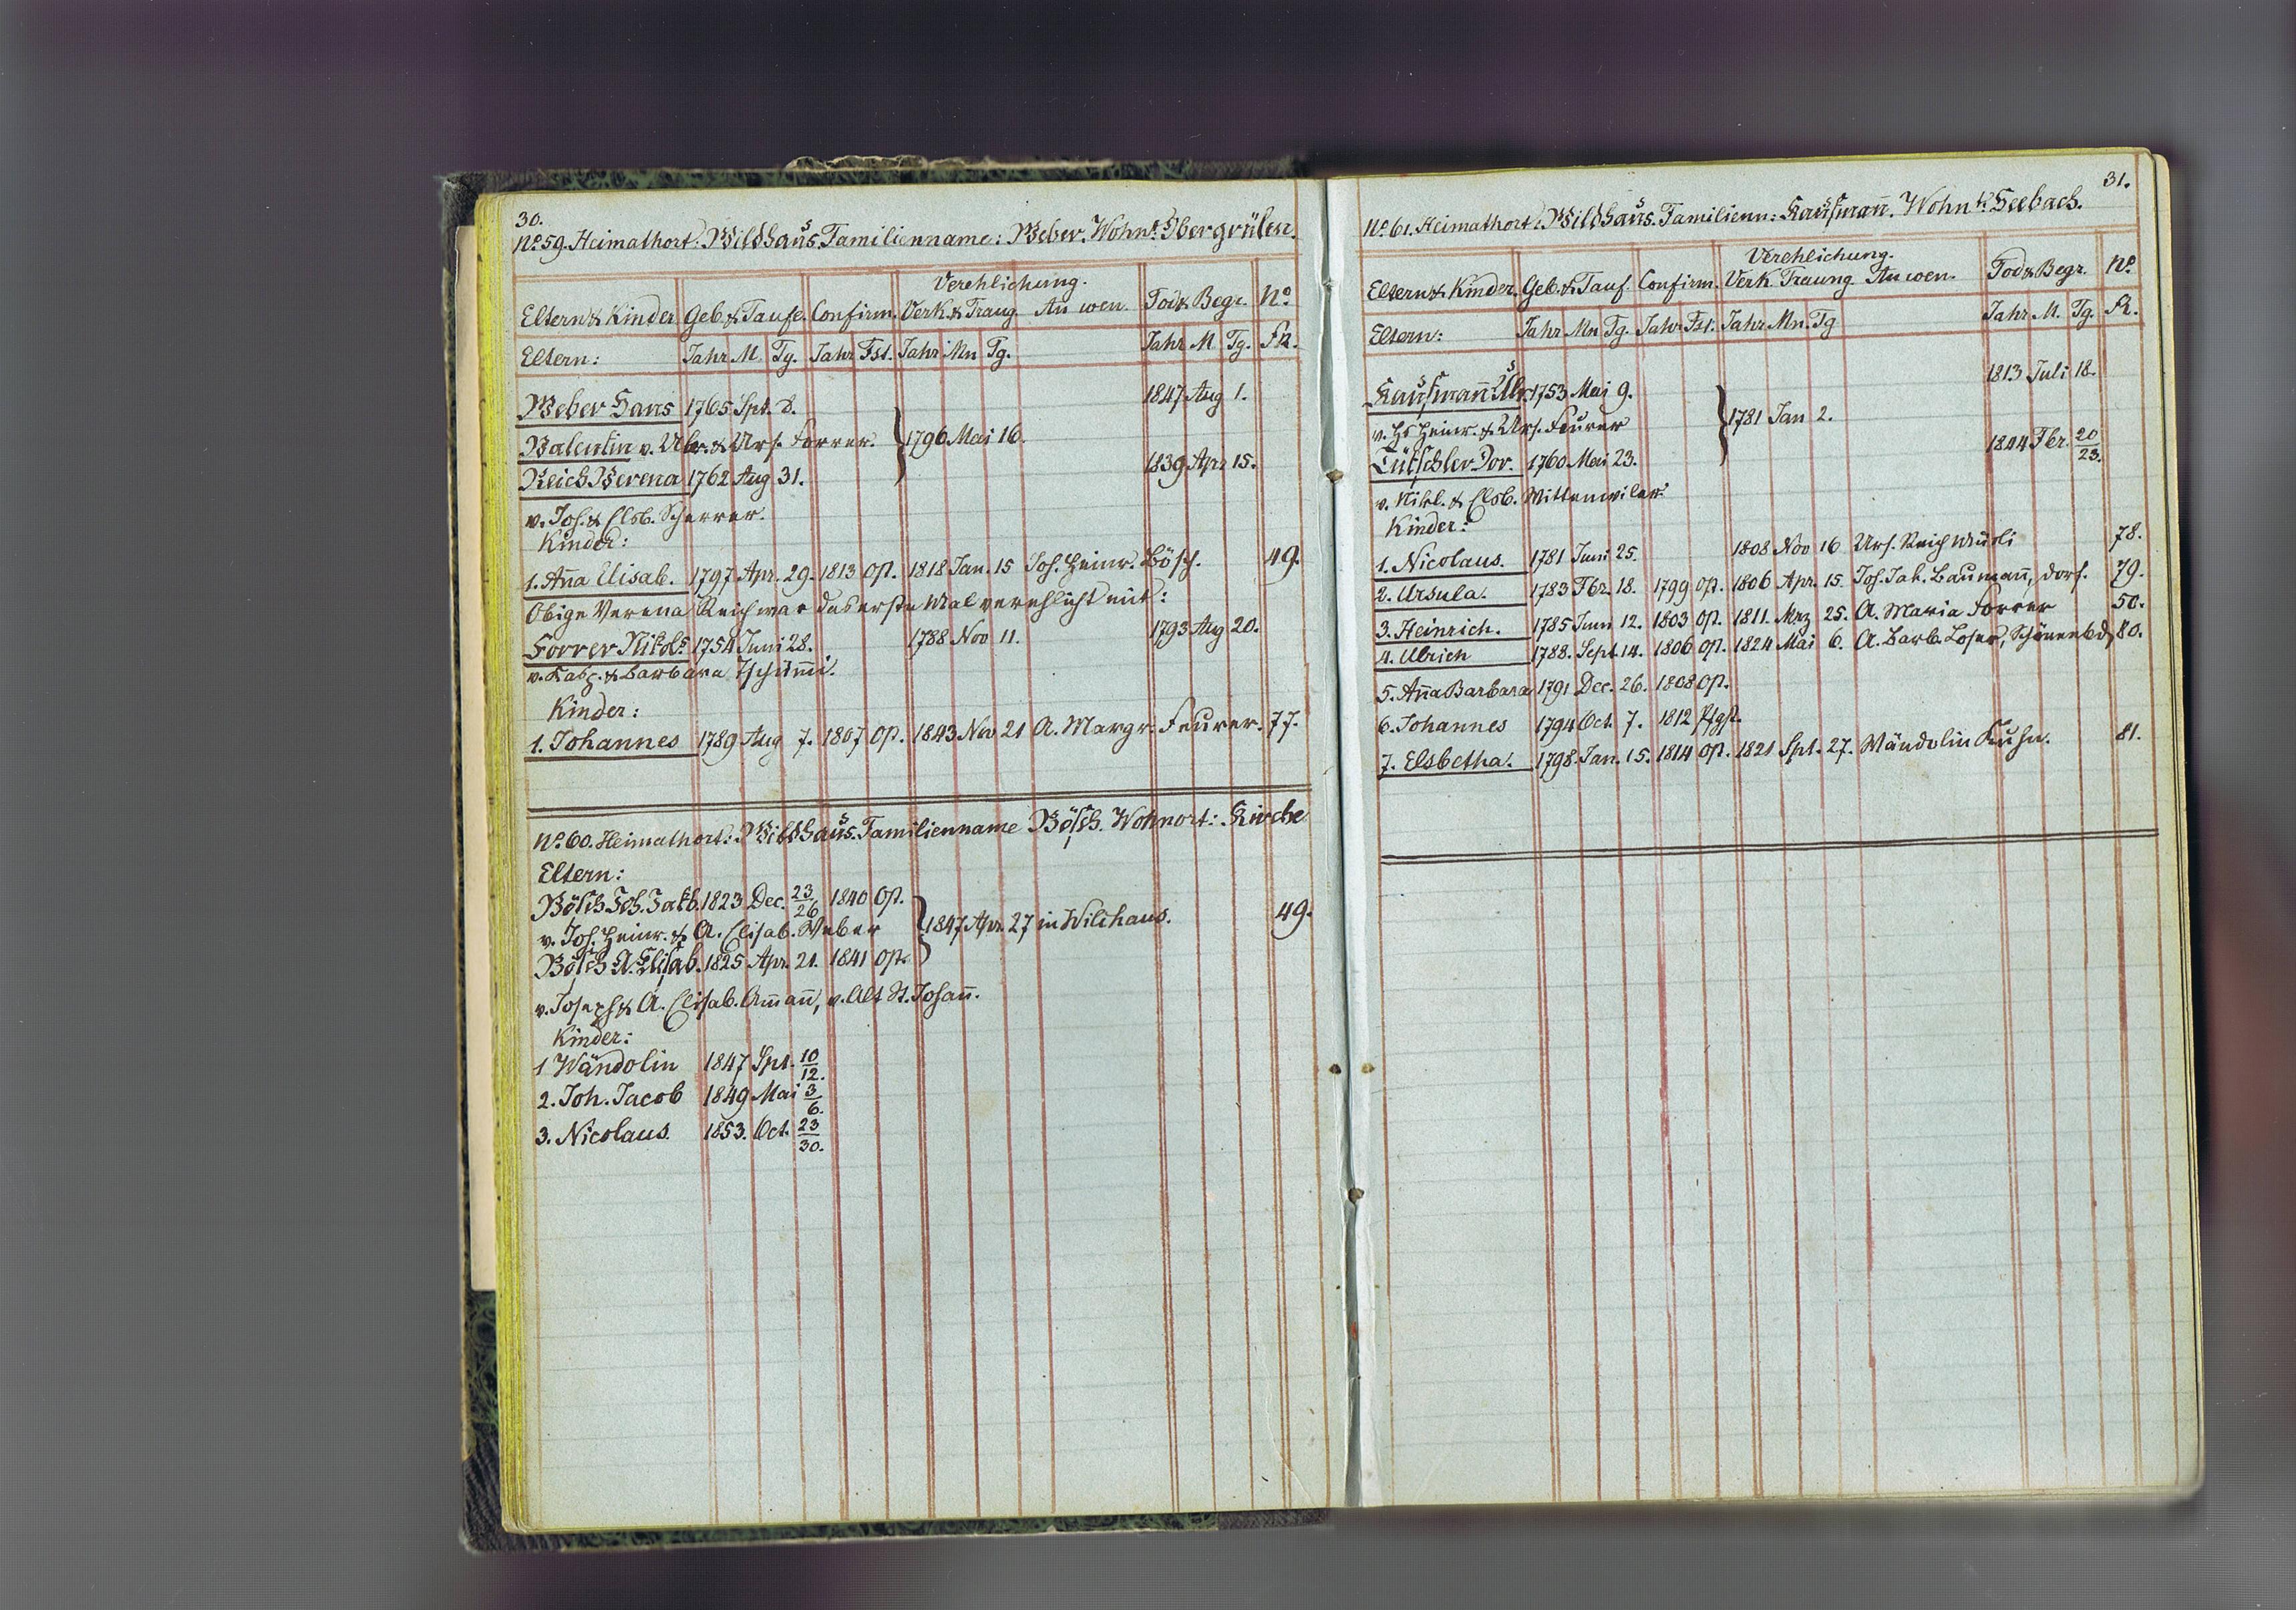 30.
No. 59. Heimathort: Wildhaus. Familienname: Weber. Wohnt. Obergrülen.
Verehlichung.
Eltern & Kinder Geb. & Taufe. Confirm. Verk. & Traug. An wen. Tod & Begr. No.
Eltern: Jahr M Tg. Jahr Fst. Jahr Mn Tg. Jahr M Tg. FR.
Weber Hans 1765 Spt. 8. 1847 Aug 1.
Valentin v. Ulr. & Urs. Forrer. } 1796 Mai 16.
Reich Verena 1762 Aug 31. 1839 Apr 15.
v. Jos. & Elsb. Scherrer.
Kinder:
1. Aña Elisab. 1797 Apr. 29. 1813 Op. 1818 Jan. 15 Joh. Heinr. Bösch. 49.
Obige Verena Reich war das erste Mal verehlicht mit:
Forrer Nikols 1754 Juni 28. 1788 Nov 11. 1793 Aug 20.
v. Kasp. & Barbara Tschüm̄i.
Kinder:
1. Johannes 1789 Aug 7. 1807 Op. 1843 Nov 21 A. Margr. Feurer. 77.
No. 60. Heimathort: Wildhaus. Familienname Bösch. Wohnort: Kirche
Eltern:
Bösch Joh. Jakb. 1823 Dec. 23/26. 1840 Op.
v. Joh. Heinr. & A. Elisab. Weber } 1847 Apr. 27 in Wildhaus. 49.
Bösch A. Elisab. 1825 Apr. 21. 1841 Op.
v. Joseph & A. Elisab. Am̄an̄, v. Alt St. Johan̄.
Kinder:
1 Wändolin 1847 Spt. 10/12.
2. Joh. Jacob 1849 Mai 3/6.
3. Nicolaus. 1853. Oct. 23/30.
31.
No. 61. Heimathort: Wildhaus. Familienn: Kaufman̄. Wohnt. Seebach.
Verehlichung.
Eltern & Kinder. Geb. & Tauf. Confirm. Verk. Traung An wen. Tod & Begr. No.
Eltern: Jahr Mn Tg. Jahr Fst. Jahr Mn. Tg Jahr M. Tg. FR.
Kaufman̄ Ulr. 1753 Mai 9. 1813 Juli 18.
v. Hs Heinr. & Urs. Feurer } 1781 Jan 2.
Lütschler Dor. 1760 Mai 23. 1844 Fbr. 20/23.
v. Nikl. & Elsb. Wittenwiler.
Kinder:
1. Nicolaus. 1781 Juni 25. 1808 Nov 16 Urs. Reich 78.
2. Ursula. 1783 Fbr. 18. 1799 Op. 1806 Apr. 15. Joh. Jak. Bauman̄, Dorf. 79.
3. Heinrich. 1785 Juni 12. 1803 Op. 1811. Mrz 25. A. Maria Forrer 50.
4. Ulrich 1788. Sept 14. 1806 Op. 1824 Mai 6. A. Barb. Loser, Schönenbd, 80.
5. Aña Barbara 1791 Dec. 26. 1808 Op.
6. Johannes 1794 Oct. 7. 1812 Pfgst.
7. Elsbetha. 1798. Jan. 15. 1814 Op. 1821 Spt. 27. Wändolin Kuhn. 81.